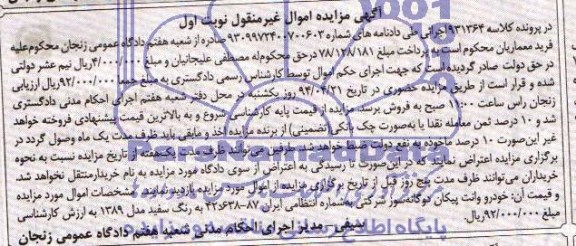 آگهی مزایده اموال غیرمنقول نوبت اول
در پرونده کلاسه ۹۳۱۳۶۴ اجرائی طی دادنامه های شماره ۹۳۰۹۹۷۲۴۰۰۷۰۰۶۰۳ صادره از شعبه هفتم دادگاه عمومی زنجان محکوم‌علیه
فرید معماریان محکوم است به پرداخت مبلغ ۷۸/۱۲۸/۱۸۱ ریال درحق محکوم‌له مصطفی علیجانیان و مبلغ ۴/۰۰۰/۰۰۰ ریال نیم عشر دولتی
در حق دولت صادر گردیده است که جهت اجرای حکم اموال توسط کارشناس رسمی دادگستری به مبلغ ۹۲/۰۰۰/۰۰۰ ریال ارزیابی
شده و قرار است از طریق مزایده حضوری در تاریخ ۹۴/۰۴/۲۱ روز یکشنبه در محل دفتر شعبه هفتم اجرای احکام مدنی دادگستری
زنجان راس ساعت ۱۱:۰۰ صبح به فروش برسد. مزایده از قیمت پایه کارشناسی شروع و به بالاترین قیمت پیشنهادی فروخته خواهد
شد و ۱۰ درصد ثمن معامله نقدا یا به‌صورت چک بانکی(تضمینی) از برنده مزایده اخذ و مابقی باید ظرف مدت یک ماه وصول گردد در
غیر این‌صورت ۱۰ درصد ماخوذه به نفع دولت ضبط خواهد شد. طرفین می‌توانند ظرف مدت یک‌هفته از تاریخ مزایده نسبت به نحوه
برگزاری مزایده اعتراض نمایند که در این‌صورت تا رسیدگی به اعتراض از سوی دادگاه مورد مزایده به نام خریدار منتقل نخواهد شد.
خریداران می‌توانند ظرف مدت پنج روز قبل از تاریخ برگزاری مزایده از اموال مورد مزایده بازدید نمایند. مشخصات اموال مورد مزایده
و قیمت آن: خودرو وانت پیکان دوگانه‌سوز شرکتی به‌شماره انتظامی ایران ۸۷-۴۲س۶۳۸ به رنگ سفید مدل ۱۳۸۹ به ارزش کارشناسی
مبلغ ۹۲/۰۰۰/۰۰۰ ریال.
مدیر اجرای احکام مدنی شعبه هفتم دادگاه عمومی زنجان
ParsNamadData
پایگاه اطلاع رسانی